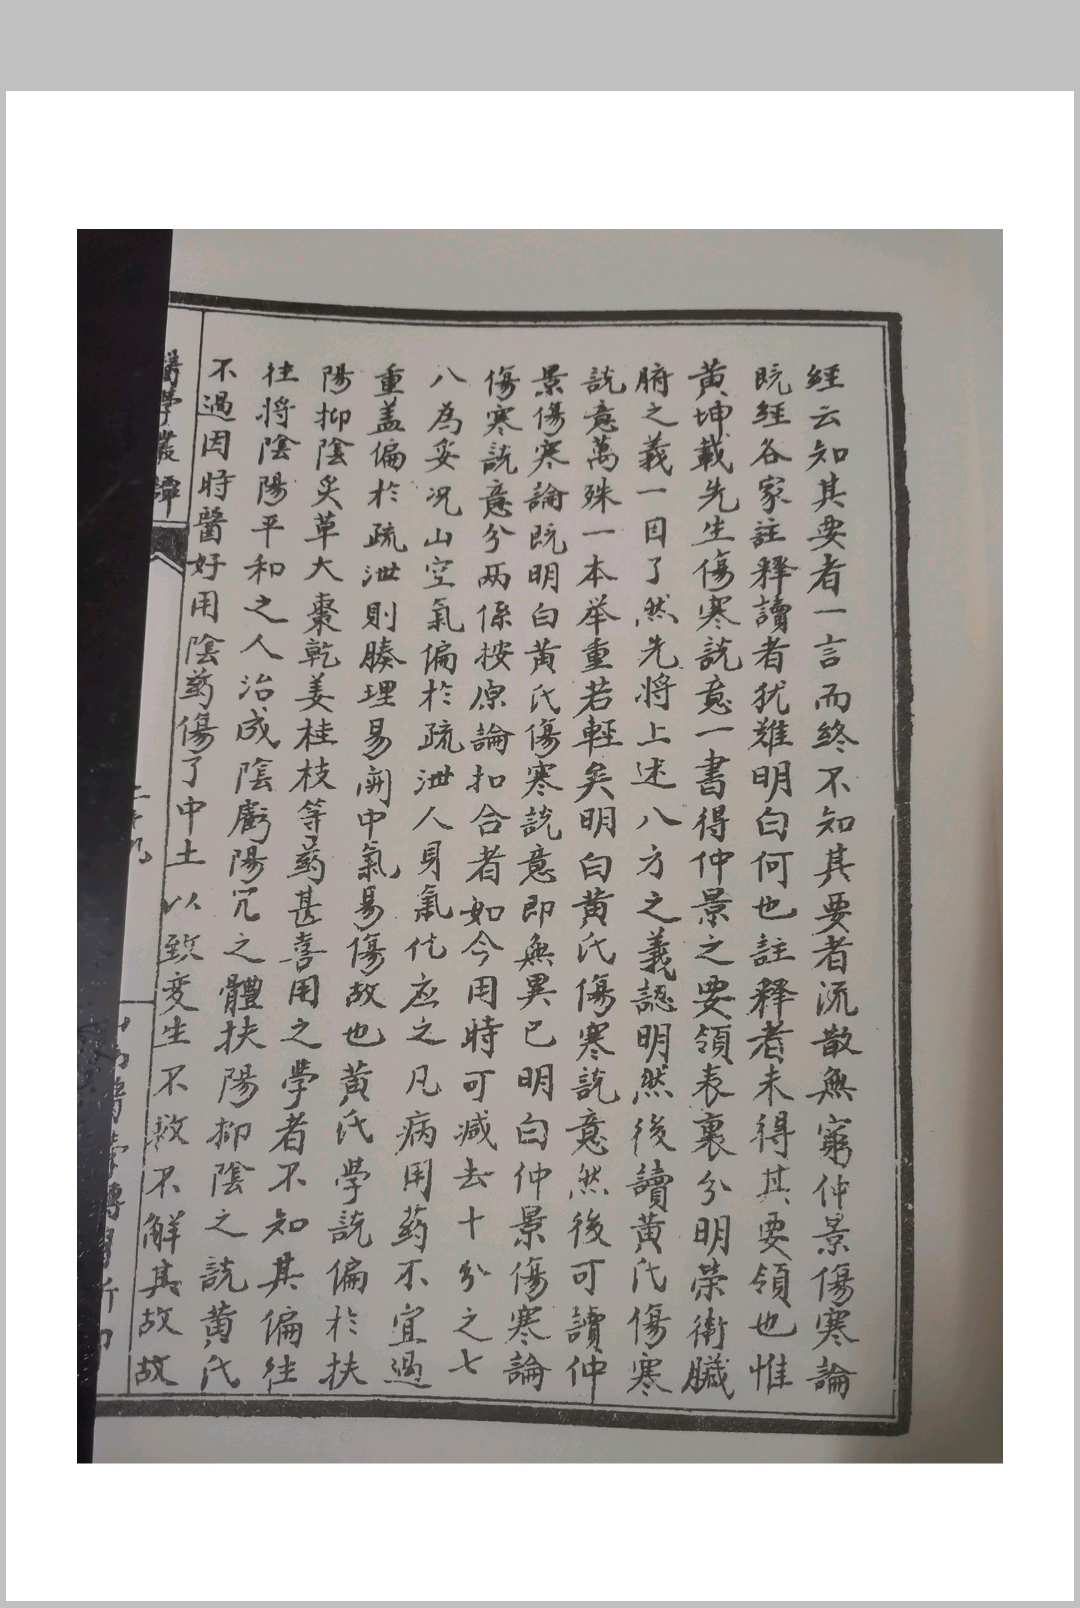 經云知其要者一言而終不知其要者流散無窮仲景傷寒論
既經各家註释讀者犹難明白何也註释者未得其要領也惟
黄坤載先生傷寒説意一書得仲景之要領表裏分明榮衛臟
腑之義一目了然先将上述八方之義認明然後讀黄氏傷寒
説意萬殊一本举重若輕矣明白黄氏傷寒説意然後可讀仲
景傷寒論既明白黄氏傷寒説意即無異已明白仲景傷寒論
傷寒説意分兩係按原論扣合者如今用時可减去十分之七
八為妥况山空氣偏於疏泄人身氣化应之凡病用药不宜過
重盖偏於疏泄則腠理易開中氣易傷故也黄氏学説偏於扶
陽抑陰炙草大棗乾姜桂枝等药甚喜用之學者不知其偏往
往将陰陽平和之人治成陰虧陽冗之體扶陽抑陰之説黄氏
不過因時醫好用陰药傷了中土以致变生不救不解其故故
醫學叢譚